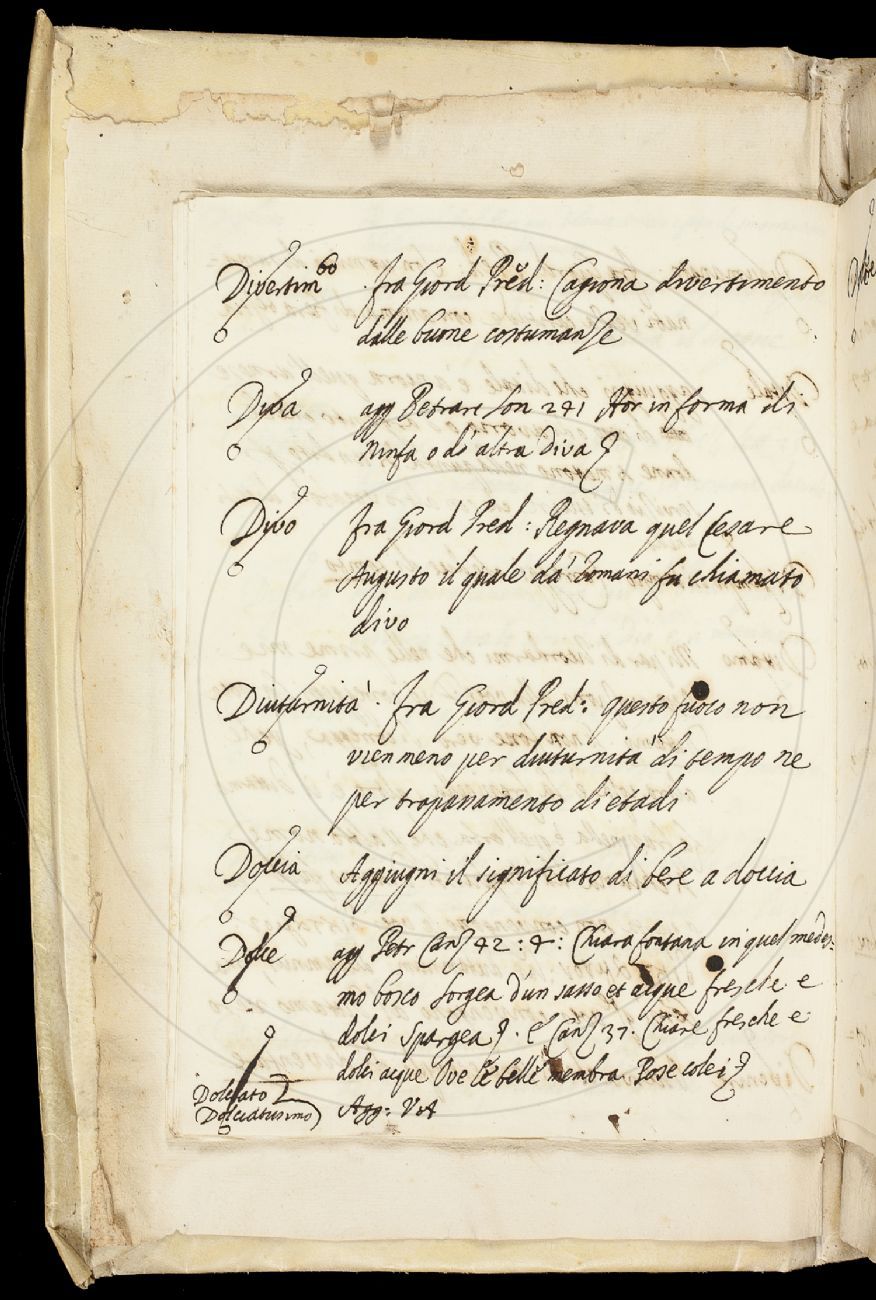 Divertim.to fra Giord Pred: Cagiona divertimento
dalle buone costumanze
Diva agg Petrarc Son 241 Hor in forma di
Ninfa o d'altra diva
Divo fra Giord Pred: Regnava quel Cesare
Augusto il quale da' Romani fu chiamato
divo
Diuturnità. fra Giord Pred: questo fuoco non
vien meno per diuturnità di tempo ne
per trapanamento di etadi
Doccia Aggiugni il significato di bere a doccia
Dolce agg Petr Canz 42: 4: Chiara fontana in quel medes-
mo bosco Sorgea d'un sasso et acque fresche e
dolci Spargea. E Canz 37. Chiare fresche e
dolci acque Ove le belle membra Pose colei
Dolciato
Dolciatissimo Agg: V.A